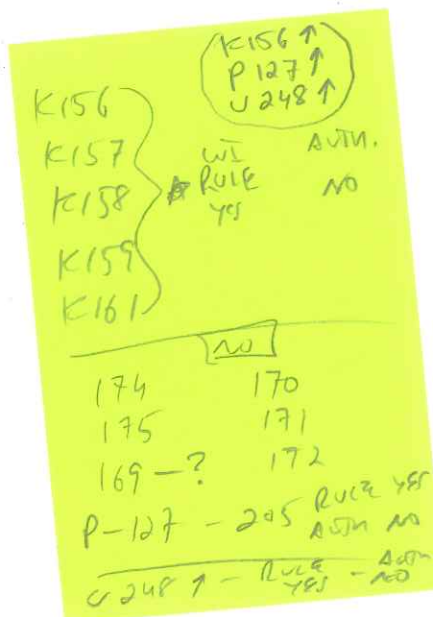 K156 ↑
P 127 ↑
U 248 ↑
K156
K157
K158
K159
K161
WI AUTH.
RULE NO
YES
NO
174 170
175 171
169 - ? 172
P - 127 - 205 RULE YES
AUTH NO
U 248 ↑ - RULE YES - AUTH NO